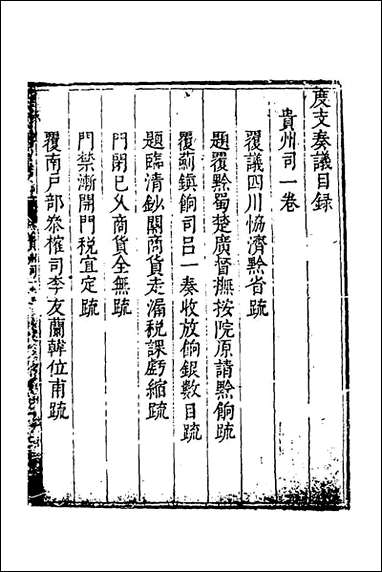 度支奏議目録
貴州司一卷
覆議四川協濟黔省疏
題覆黔蜀楚廣督撫按院原請黔餉疏
覆薊鎮餉司呂一奏收放餉銀數目疏
題臨清鈔關商貨走漏稅課虧縮疏
門閉已久商貨全無疏
門禁漸開門稅宜定疏
覆南戶部叅榷司李友蘭韓位甫疏